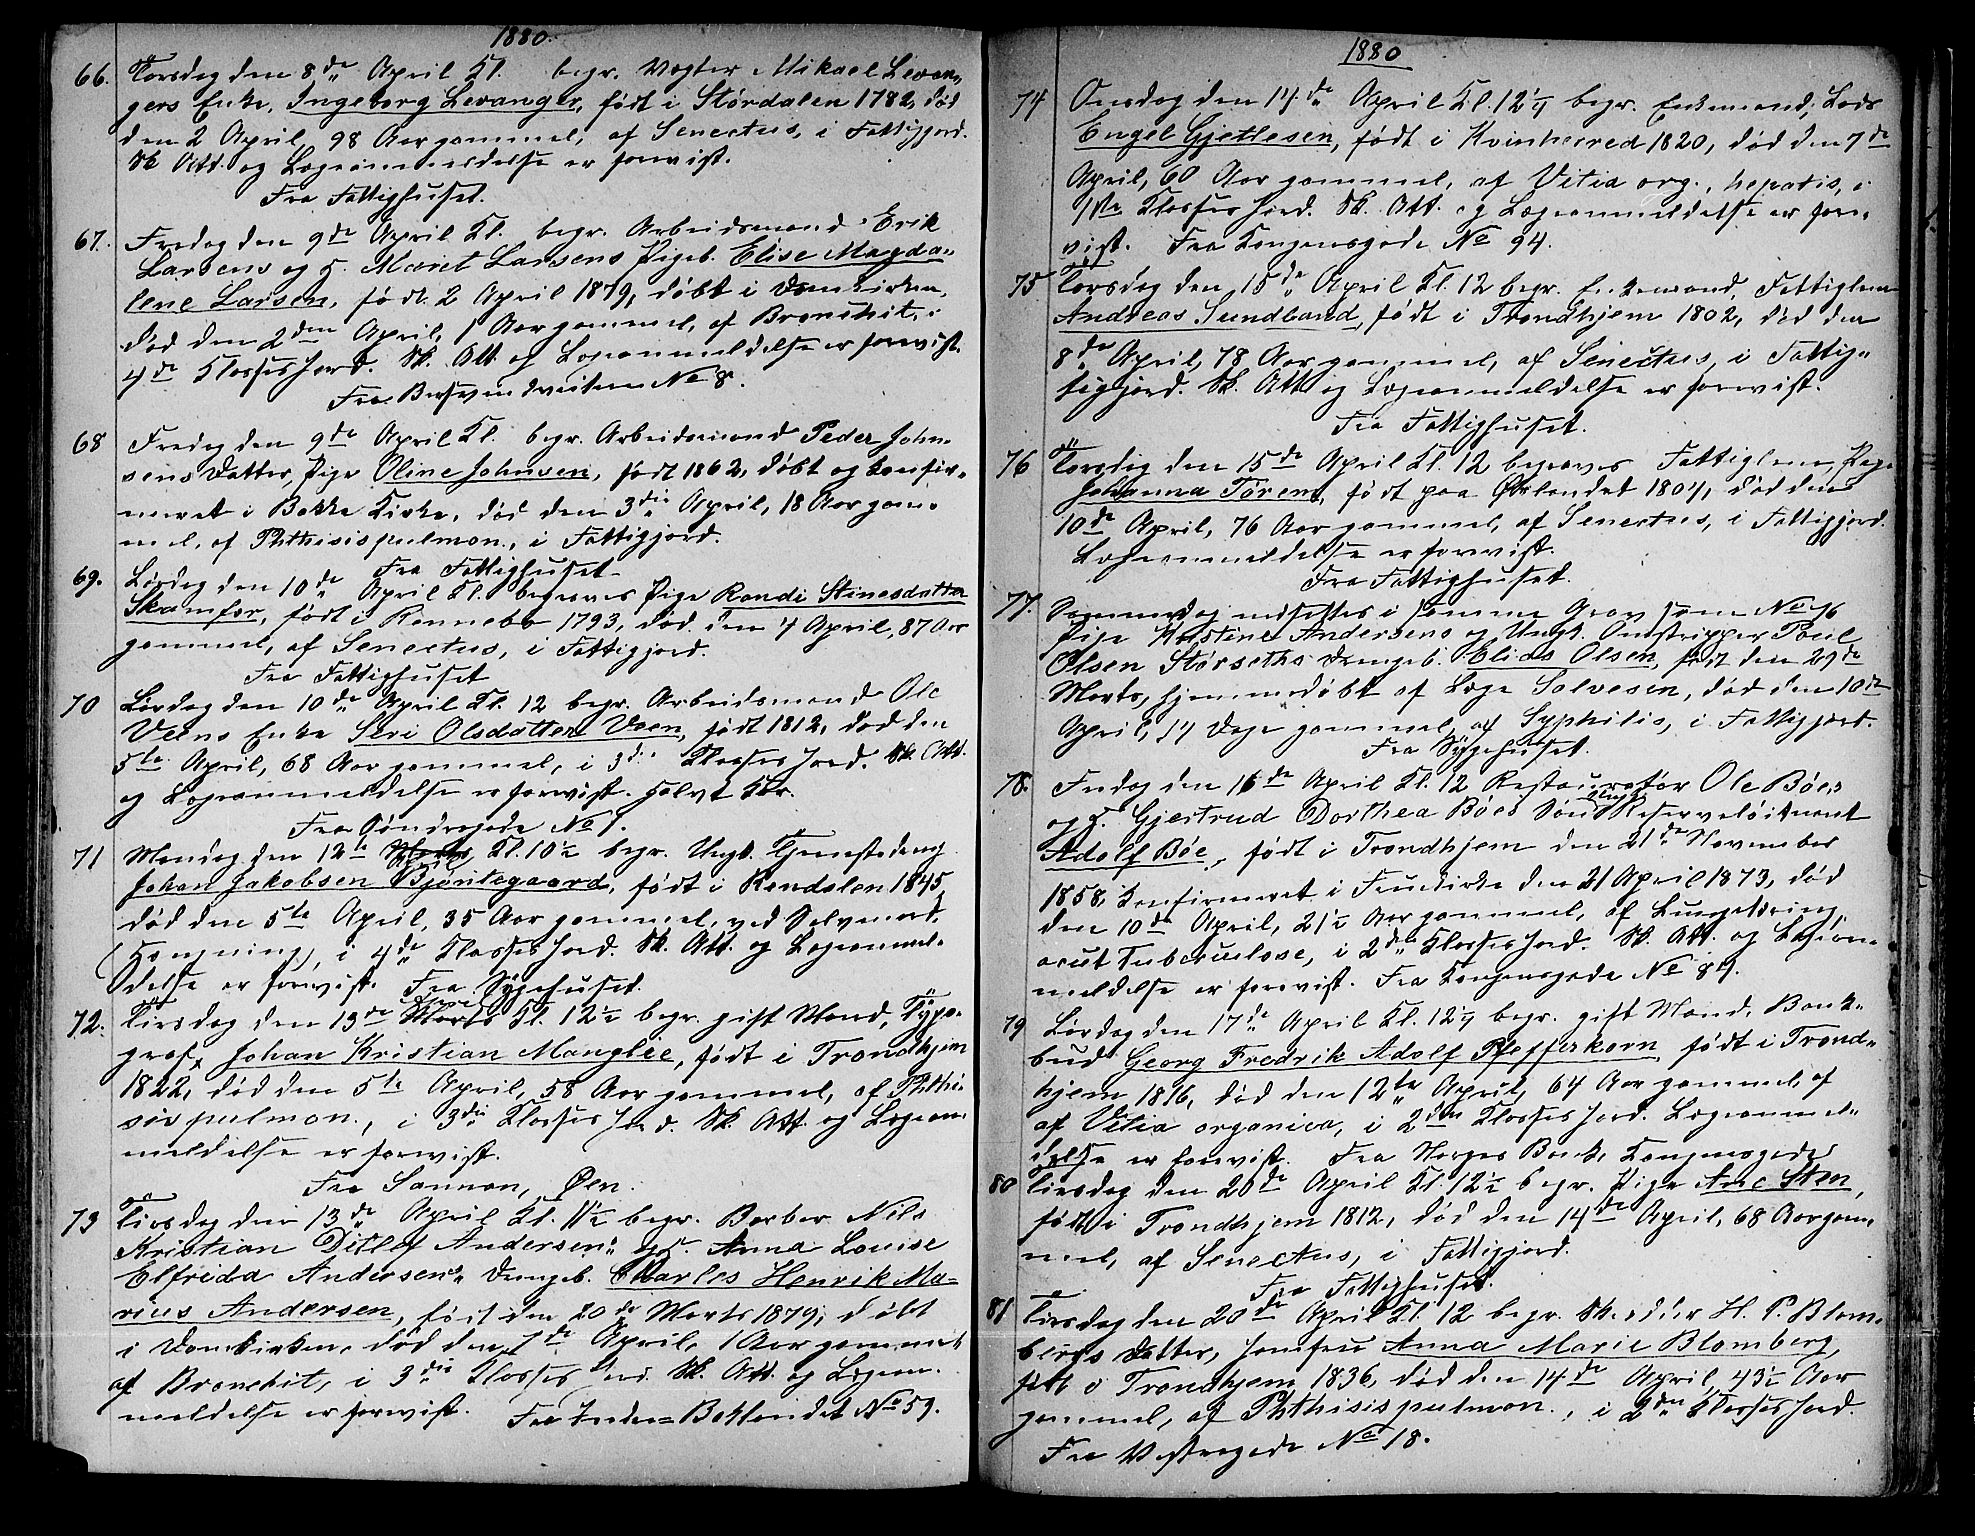 1880.
66. Torsdag den 8de April Kl. begr. Vægter Mikael Levan-
gers Enke, Ingeborg Levanger, født i Størdalen 1782, død
den 2 April, 98 Aar gammel, af Senectus, i Fattigjord.
Sk. Att. og Lægeanmeldelse er forevist.
Fra Fattighuset.
67. Fredag den 9de April Kl. begr. Arbeidsmand Erik
Larsens og H. Meret Larsens Pigeb. Elise Magda-
lene Larsen, født 2 April 1879, døbt i Domkirken,
død den 2den April, 1 Aar gammel, af Bronchit, i
4de Klasses Jord. Sk. Att. og Lægeanmeldelse er forevist.
Fra Bersvendveiten No 8.
68 Fredag den 9de April Kl. begr. Arbeidsmand Peder John-
sens Datter, Pige Oline Johnsen, født 1862, døbt og konfir-
meret i Bakke Kirke, død den 3die April, 18 Aar gam-
mel, af Phthisis pulmon., i Fattigjord.
Fra Fattighuset.
69. Lørdag den 10de April Kl. begraves Pige Randi Stinesdatter
Skamfer, født i Rennebo 1793, død den 4 April, 87 Aar
gammel, af Senectus, i Fattigjord.
Fra Fattighuset
70 Lørdag den 10de April Kl. 12 begr. Arbeidsmand Ole
Veens Enke Seri Olsdatter Veen, født 1812, død den
5te April, 68 Aar gammel, i 3die Klasses Jord. Sk. Att.
og Lægeanmeldelse er forevist. Halvt Kor.
Fra Søndregade No 1.
71 Mandag den 12te April Kl. 10½ begr. Ungk. Tjenestedreng
Johan Jakobsen Bjøntegaard, født i Rendalen 1845,
død den 5te April, 35 Aar gammel, ved Selvmord,
(Hængning), i 4de Klasses Jord. Sk. Att. og Lægeanmel-
delse er forevist. Fra Sygehuset.
72. Tirsdag den 13de April Kl. 12½ begr. gift Mand, Typo-
graf, Johan Kristian Manglie, født i Trondhjem
1822, død den 5te April, 58 Aar gammel, af Phthi-
sis pulmon., i 3die Klasses Jord. Sk. Att. og Lægean-
meldelse er forevist.
Fra Sannan, Øen.
73 Tirsdag den 13de April Kl. 11½ begr. Barber Nils
Kristian Ditlef Andersens og H. Anna Louise
Elfrida Andersens Drengeb. Charles Henrik Ma-
rius Andersen, født den 20de Marts 1879, døbt
i Domkirken, død den 7de April, 1 Aar gammel
af Bronchit, i 3die Klasses Jord. Sk. Att. og Lægean-
meldelse er forevist. Fra Indre-Baklandet No 59.
1880
74 Onsdag den 14de April Kl. 12¼ begr. Enkemand, Lods
Engel Gjetlesen, født i Kvinherred 1820, død den 7de
April, 60 Aar gammel, af Vitia org., hepatis, i
1ste Klasses Jord. Sk. Att. og Lægeanmeldelse er fore-
vist. Fra Kongensgade No 94.
75 Torsdag den 15de April Kl. 12 begr. Enkemand, Fattiglem
Andreas Sundland, født i Trondhjem 1802, død den
8de April, 78 Aar gammel, af Senectus, i Fattig-
tigjord. Sk. Att. og Lægeanmeldelse er forevist.
Fra Fattighuset.
76 Torsdag den 15de April Kl. 12 begraves Fattiglem, Pige
Johanna Tørem, født paa Ørlandet 1804, død den
10de April, 76 Aar gammel, af Senectus, i Fattigjord.
Lægeanmeldelse er forevist.
Fra Fattighuset.
77. Sammedag nedsettes i samme Grav som No 76
Pige Kristine Andersens og Ungk. Omstripper Poul
Olsen Størseths Drengeb. Elias Olsen, født den 27de
Marts, hjemmedøbt af Læge Solvesen, død den 10de
April, 14 Dage gammel, af Syphilis, i Fattigjord.
Fra Sygehuset.
78. Fredag den 16de April Kl. 12 Restauratør Ole Bøes
og H. Gjertrud Dorthea Bøes Søn Ungk. Reserveløitnant
Adolf Bøe, født i Trondhjem den 21de November
1858, konfirmeret i Fruekirke den 21 April 1873, død
den 10de April, 21½ Aar gammel, af Lungetæring,
acut Tuberculose, i 2den Klasses Jord. Sk. Att. og Lægean-
meldelse er forevist. Fra Kongensgade No 87.
79 Lørdag den 17de April Kl. 12¼ begr. gift Mand, Bank-
bud Georg Fredrik Adolf Pfefferkorn, født i Trond-
hjem 1816, død den 12te April, 64 Aar gammel, af
af Vitia organica, i 2den Klasses Jord. Lægeanmel-
delse er forevist. Fra Norges Bank, Kongensgade
80 Tirsdag den 20de April Kl. 12½ begr. Pige Ane Sten,
født i Trondhjem 1812, død den 14de April, 68 Aar gam-
mel, af Senectus, i Fattigjord.
Fra Fattighuset.
81 Tirsdag den 20de April Kl. 12 begr. Skræder H. P. Blom-
bergs Datter, Jomfru Anna Marie Blomberg,
født i Trondhjem 1836, død den 14de April, 43½ Aar
gammel, af Phthisis pulmon., i 2den Klasses Jord.
Fra Vestregade No 18.